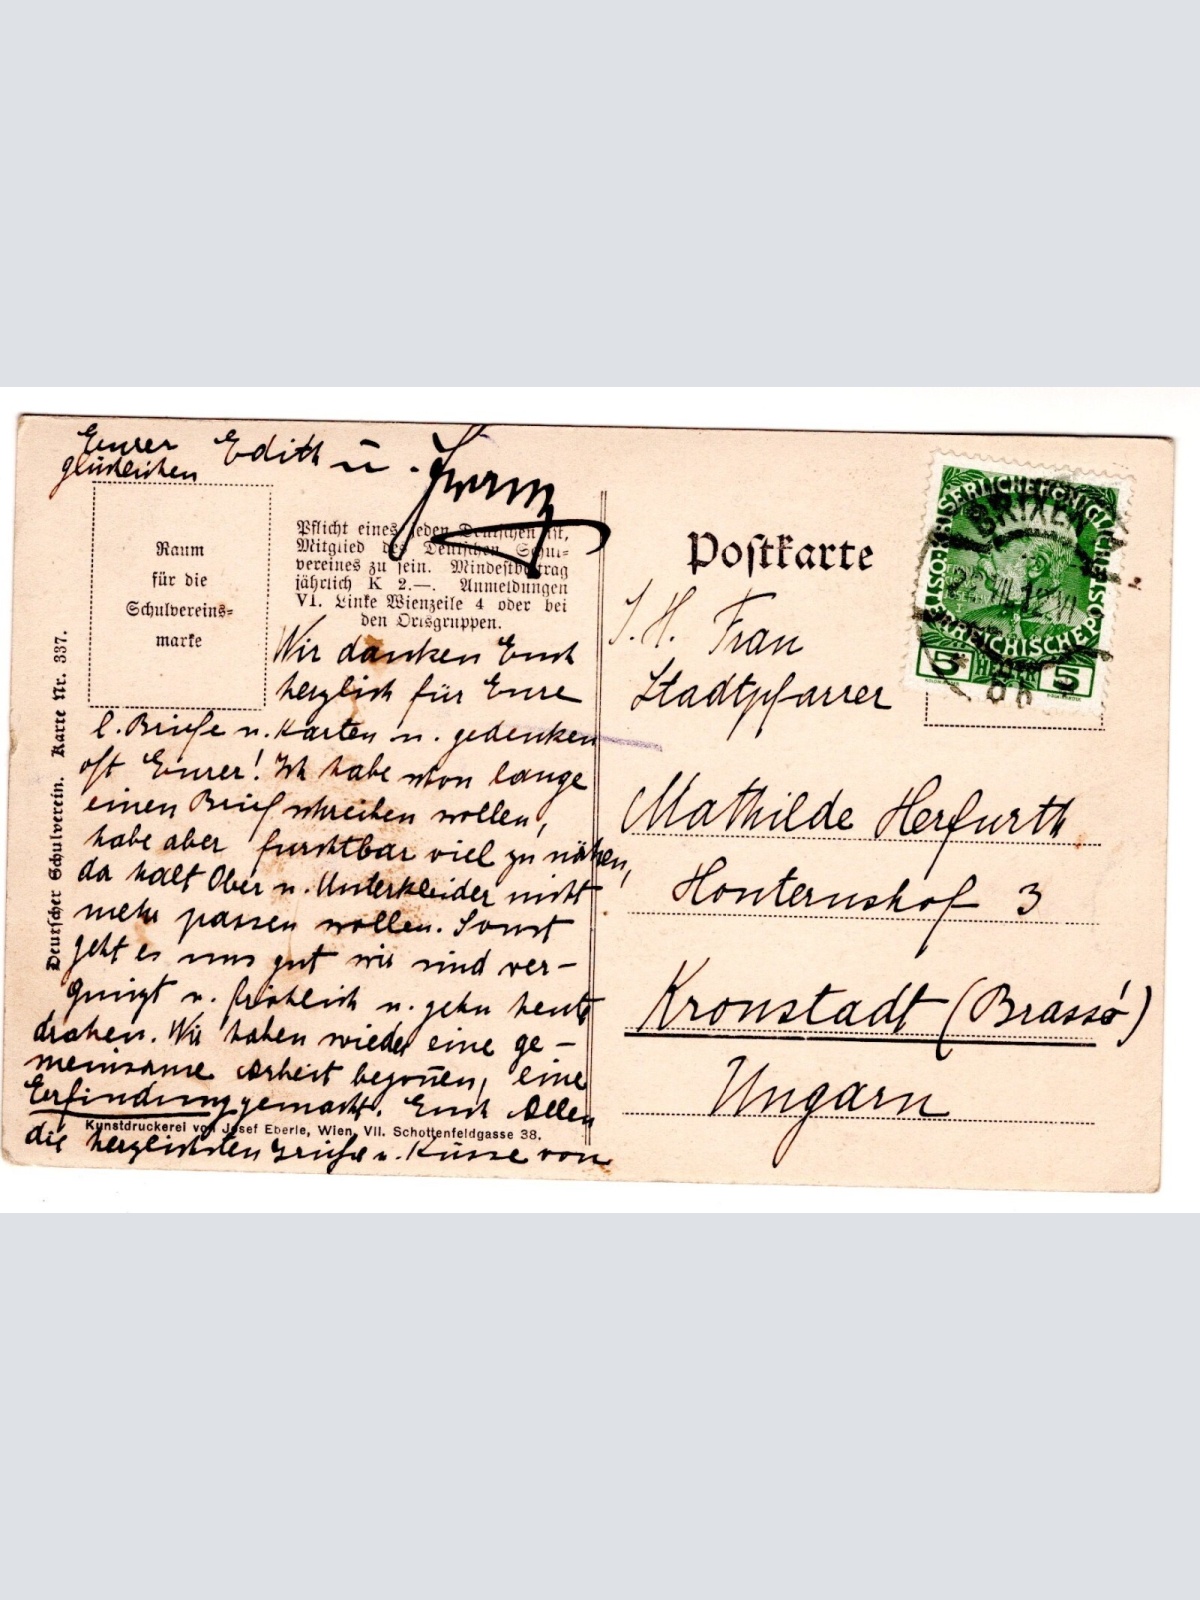 Wir danken Euch
herzlich für Eure
l. Briefe u. Karten u. gedenken
oft Eurer! Ich habe schon lange
einen Brief schreiben wollen,
habe aber furchtbar viel zu nähen,
da halt Ober u. Unterkleider nicht
mehr passen wollen. Sonst
geht es uns gut wir sind ver-
gnügt u. fröhlich u. gehn heute
Wir haben wieder eine ge-
meinsame Arbeit begoñen, eine
Erfindung gemacht. Euch Allen
die herzlichsten Grüße u. Küsse von
Eurer
glücklichen
Edith u.
Raum
für die
Schulvereins-
marke
Pflicht eines jeden Deutschen ist,
Mitglied des Deutschen Schul-
vereines zu sein. Mindestbeitrag
jährlich K 2.—. Anmeldungen
VI. Linke Wienzeile 4 oder bei
den Ortsgruppen.
Deutscher Schulverein. Karte Nr. 337.
Kunstdruckerei von Josef Eberle, Wien, VII. Schottenfeldgasse 38.
Postkarte
Frau
Stadtpfarrer
Mathilde Herfurth
Honterushof 3
Kronstadt (Brassó)
Ungarn
KAISERLICHE KÖNIGLICHE
ÖSTERREICHISCHE POST
5 5
BRIXEN